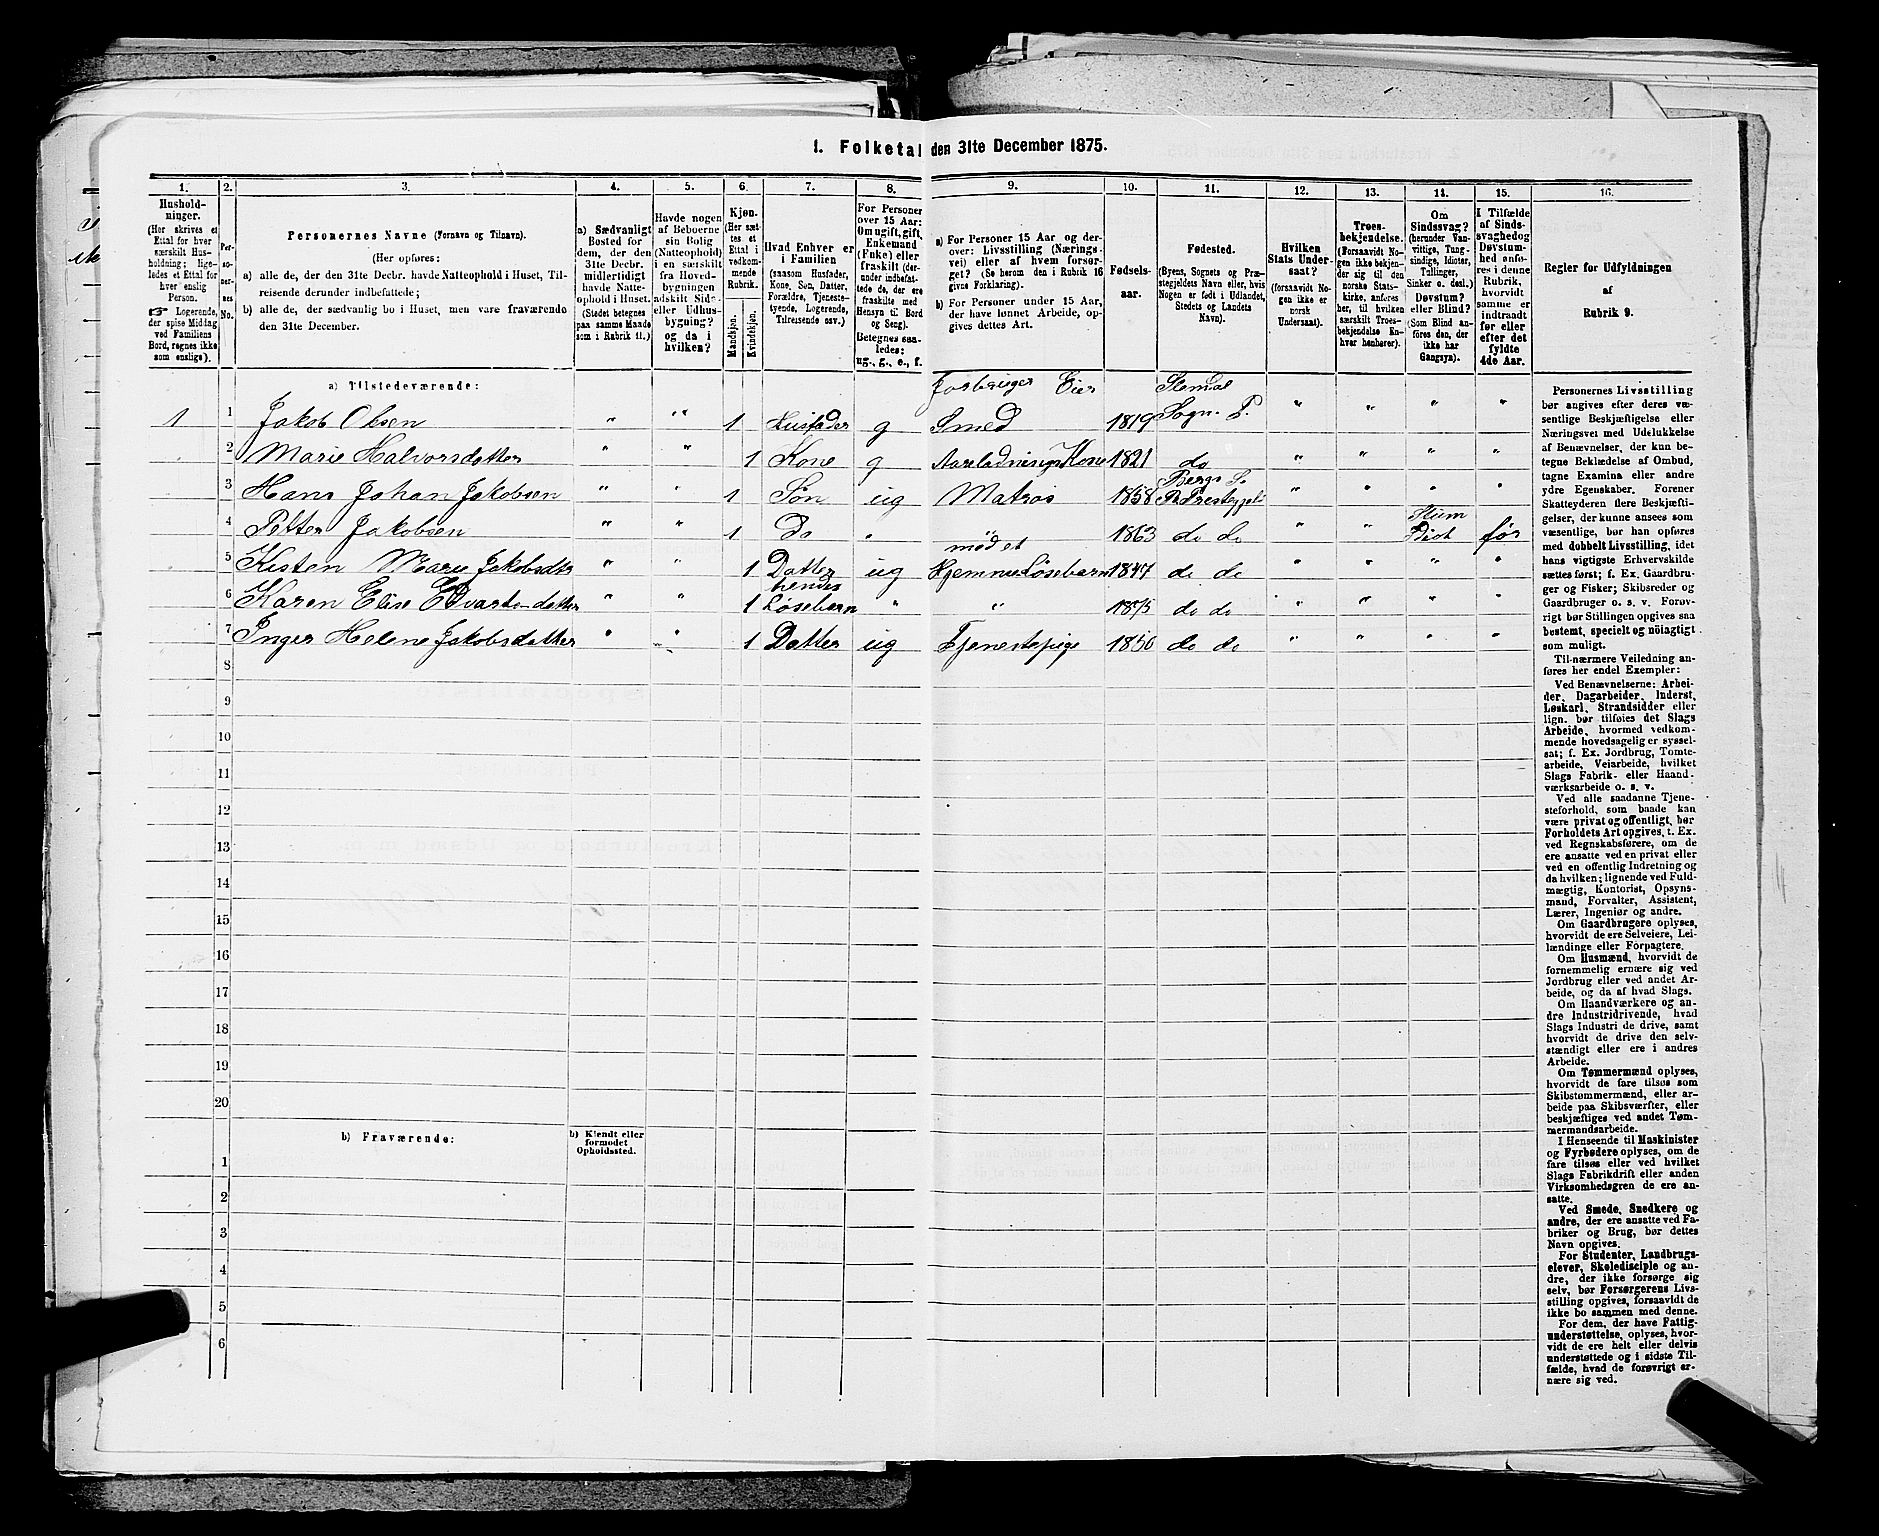 1. Folketal den 31te December 1875.
1. 2. 3. 4. 5. 6. 7. 8. 9. 10. 11. 12. 13. 14. 15. 16.
Hushold-
ninger.
(Her skrives et
Ettal for hver
særskilt Hus-
holdning; lige-
ledes et Ettal for
hver enslig
Person.
☞ Logerende,
der spise Middag
ved Familiens
Bord, regnes ikke
som enslige).
Per-
so-
ner-
nes
No.
Personernes Navne (Fornavn og Tilnavn).
(Her opføres:
a) alle de, der den 31te Decbr. havde Natteophold i Huset, Til-
reisende derunder indbefattede;
b) alle de, der sædvanlig bo i Huset, men vare fraværende
den 31te December.
a) Sædvanligt
Bosted for
dem, der den
31te Decbr.
midlertidigt
havde Natte-
ophold i Huset.
(Stedet betegnes
paa samme Maade
som i Rubrik 11.)
Havde nogen
af Beboerne
sin Bolig
(Natteophold)
i en særskilt
fra Hoved-
bygningen
adskilt Side-
eller Udhus-
bygning?
og da i
hvilken?
Kjøn.
(Her sæt-
tes et
Ettal i
vedkom-
mende
Rubrik.
Mandkjøn.
Kvindekjøn.
Hvad Enhver er
i Familien
(saasom Husfader,
Kone, Søn, Datter,
Forældre, Tjeneste-
tyende, Logerende,
Tilreisende osv.)
For Personer
over 15 Aar:
Om ugift, gift,
Enkemand
(Enke) eller
fraskilt (der-
under indbefat-
tede de, der ere
fraskilte med
Hensyn til Bord
og Seng).
Betegnes saa-
ledes:
ug., g., e., f.
a) For Personer 15 Aar og der-
over: Livsstilling (Nærings-
vei) eller af hvem forsør-
get? (Se herom den i Rubrik 16
givne Forklaring).
b) For Personer under 15 Aar,
der have lønnet Arbeide, op-
gives dettes Art.
Fødsels-
aar.
Fødested.
(Byens, Sognets og Præ-
stegjeldets Navn eller, hvis
Nogen er født i Udlandet,
Stedets og Landets
Navn).
Hvilken
Stats Under-
saat?
(forsaavidt No-
gen ikke er
norsk
Undersaat).
Troes-
bekjendelse.
(Forsaavidt No-
gen ikke bekjen-
der sig til den
norske Stats-
kirke, anføres
her, til hvilken
særskilt Troes-
bekjendelse En-
hver henhører).
Om
Sindssvag?
(herunder Van-
vittige, Tung-
sindige, Idioter,
Tullinger,
Sinker o. desl.)
Døvstum?
eller Blind?
(Som Blind an-
føres den, der
ikke har
Gangsyn).
I Tilfælde
af Sinds-
svaghed og
Døvstum-
hed anfø-
res i denne
Rubrik,
hvorvidt
samme er
indtraadt
før eller
efter det
fyldte
4de Aar.
Regler for Udfyldningen
af
Rubrik 9.
a) Tilstedeværende:
1 1 Jakob Olsen " " 1 Husfader g Jordbruger Eier Smed 1819 Sogn. P. " " " "
2 Marie Halvorsdatter " " 1 Kone g Kone 1821 do " " " "
3 Hans Johan Jakobsen " " 1 Søn ug Matros 1858 Bergs " " " "
4 Petter Jakobsen " " 1 Do " 1863 do do " " før
5 Kisten Marie Jakobsdtr " " 1 Datter ug Hjemme Løsebarn 1847 do do " " " "
6 Karen Elise Edvartsdatter " " 1 hendes Løsebarn " " 1875 do do " " " "
7 Inger Helene Jakobsdatter " " 1 Datter ug Tjenestepige 1850 do do " " " "
8
9
10
11
12
13
14
15
16
17
18
19
20
b) Fraværende:
b) Kjendt eller
formodet
Opholdssted.
1
2
3
4
5
6
Personernes Livsstilling
bør angives efter deres væ-
sentlige Beskjæftigelse eller
Næringsvei med Udelukkelse
af Benævnelser, der kun be-
tegne Beklædelse af Ombud,
tagne Examina eller andre
ydre Egenskaber. Forener
Skatteyderen flere Beskjæfti-
gelser, der kunne ansees som
væsentlige, bør han opføres
med dobbelt Livsstilling, idet
hans vigtigste Erhvervskilde
sættes først; f. Ex. Gaardbru-
ger og Fisker; Skibsreder og
Gaardbruger o. s. v. Forøv-
rigt bør Stillingen opgives saa
bestemt, specielt og nöiagtigt
som muligt.
Til nærmere Veiledning an-
føres her endel Exempler:
Ved Benævnelserne: Arbei-
der, Dagarbeider, Inderst,
Løskarl, Strandsidder eller
lign. bør tilføies det Slags
Arbeide, hvormed vedkom-
mende hovedsagelig er syssel-
sat; f. Ex. Jordbrug, Tomte-
arbeide, Veiarbeide, hvilket
Slags Fabrik- eller Haand-
værksarbeide o. s. v.
Ved alle saadanne Tjene-
steforhold, som baade kan
være privat og offentligt, bør
Forholdets Art opgives, t. Ex.
ved Regnskabsførere, om de
ere ansatte ved en privat eller
ved en offentlig Indretning og
da hvilken; lignende ved Fuld-
mægtig, Kontorist, Opsyns-
mand, Forvalter, Assistent,
Lærer, Ingeniør og andre.
Om Gaardbrugere oplyses,
hvorvidt de ere Selveiere, Lei-
lændinge eller Forpagtere.
Om Husmænd, hvorvidt de
fornemmelig ernære sig ved
Jordbrug eller ved andet Ar-
beide, og da af hvad Slags.
Om Haandværkere og an-
dre Industridrivende, hvad
Slags Industri de drive, samt
hvorvidt de drive den selv-
stændigt eller ere i andres
Arbeide.
Om Tømmermænd oplyses,
hvorvidt de fare tilsøs som
Skibstømmermænd, eller ar-
beide paa Skibsværfter, eller
beskjæftiges ved andet Tøm-
mermandsarbeide.
I Henseende til Maskinister
og Fyrbødere oplyses, om de
fare tilsøs eller ved hvilket
Slags Fabrikdrift eller anden
Virksomhedsgren de ere an-
satte.
Ved Smede, Snedkere og
andre, der ere ansatte ved Fa-
briker og Brug, bør dettes
Navn opgives.
For Studenter, Landbrugs-
elever, Skoledisciple og an-
dre, der ikke forsørge sig
selv, bør Forsørgerens Livs-
stilling opgives, forsaavidt de
ikke bo sammen med denne.
For dem, der have Fattig-
understøttelse, oplyses, hvor-
vidt de ere helt eller delvis
understøttede og i sidste Til-
fælde, hvad de forøvrigt er-
nære sig ved.